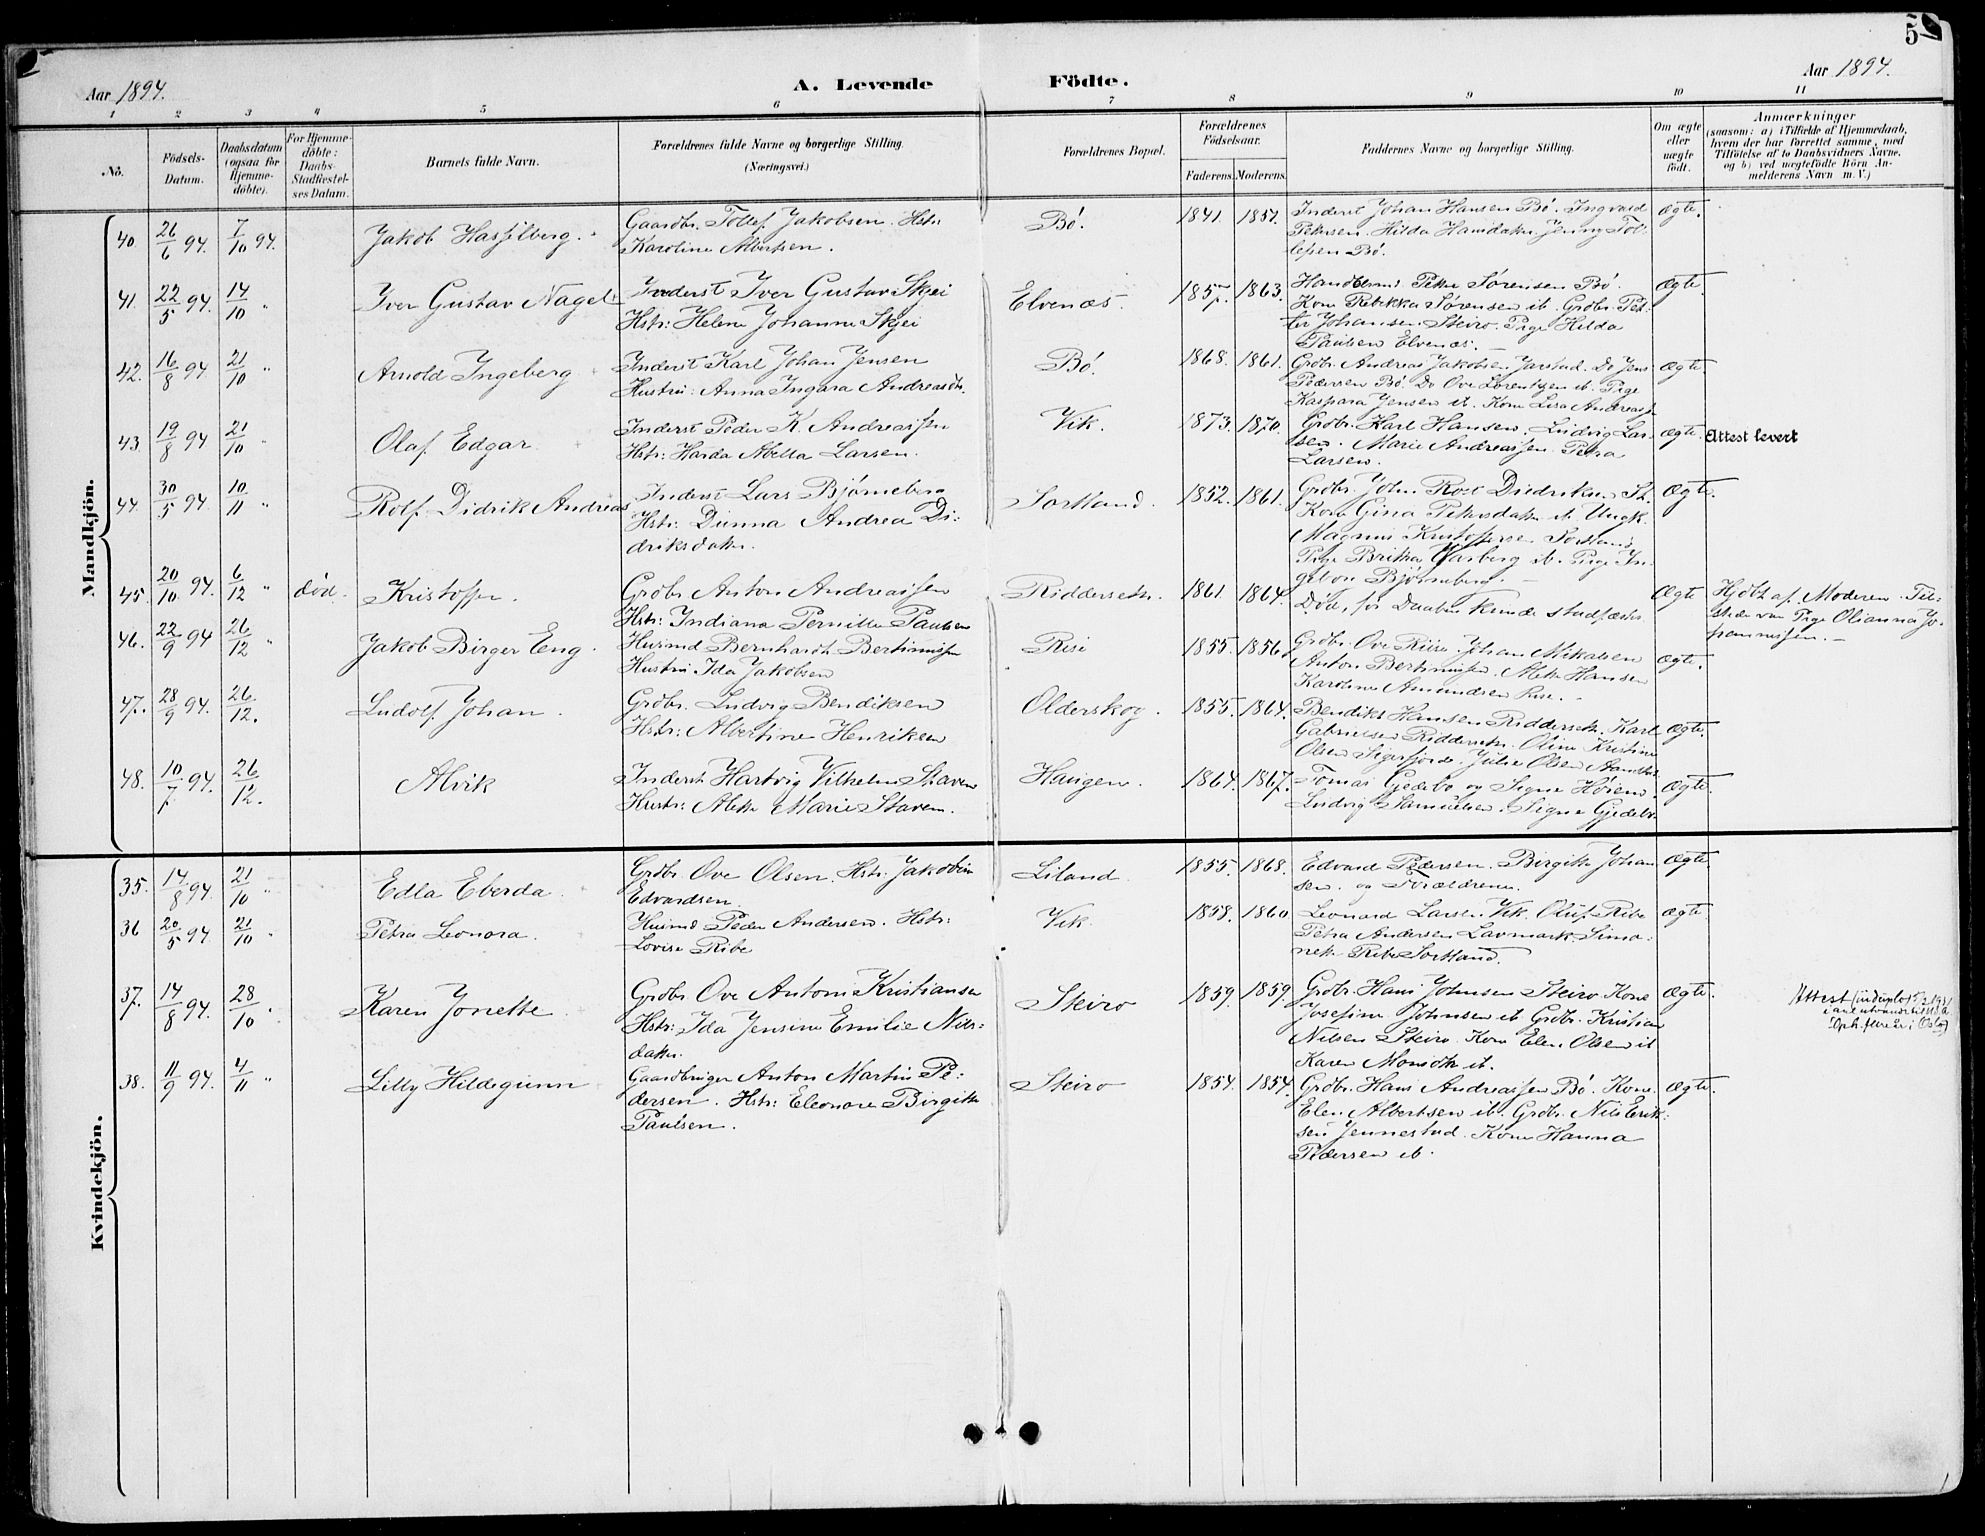 5
Aar 1894.
A. Levende Födte.
Aar 1894.
1 2 3 4 5 6 7 8 9 10 11
No.
Födsels-
Datum.
Daabsdatum
(ogsaa for
Hjemme-
döbte).
For Hjemme-
döbte:
Daabs-
Stadfæstel-
ses Datum.
Barnets fulde Navn.
Forældrenes fulde Navne og borgerlige Stilling.
(Næringsvei.)
Forældrenes Bopæl.
Forældrenes
Födselsaar.
Faderens. Moderens.
Faddernes Navne og borgerlige Stilling.
Om ægte
eller
uægte
födt.
Anmærkninger
(saasom: a) i Tilfælde af Hjemmedaab,
hvem der har forrettet samme, med
Tilföielse af to Daabsvidners Navne,
og b) ved uægtefödte Börn An-
melderens Navn m. V.)
Mandkjön.
40. 26/6 94. 7/10 94. Jakob Hasselberg.
Gaardbr. Tollef Jakobsen. Hstr:
Karoline Albertsen.
Bö. 1841. 1852.
Inderst Johan Hansen Bö. Ingvard
Petersen. Hilda Hansdatter Jenny Tol-
lefsen Bö.
Ægte.
41. 22/5 94. 14/10 " Iver Gustav Nagel
Inderst Iver Gustav Skjei
Hstr: Helene Johanne Skjei
Elvenæs. 1857. 1863.
Handelsmd. Peter Sørensen Bö.
Kone Rebekka Sørensen ib. Grdbr. Pet-
ter Johansen Steiro. Pige Hilda
Paulsen Elvenæs.
Ægte.
42. 16/8 94 21/10 " Arnold Ingeberg
Inderst Karl Johan Jensen
Hustru: Anna Ingara Andreasdtr.
Bö. 1868. 1861.
Grdbr. Andreas Jakobsen Jarstad. Do Jens
Pedersen Bö. Do Ove Lorentzen ib. Pige
Kaspara Jensen ib. Kone Lisa Andreass
Ægte.
43. 19/8 94 21/10 Olaf Edgar
Inderst Peder K. Andreassen
Hstr: Harda Metta Larsen.
Vik. 1873. 1870.
Grdbr. Karl Hansen, Ludvig Lar-
sen. Marie Andreassen. Petra
Larsen.
Ægte. Attest levert
44. 30/5 94. 10/11 " Rolf Didrik Andreas
Inderst Lars Bjørneberg
Hstr: Dinna Andrea Di-
driksdatter.
Sortland. 1852. 1861.
Grdbr. John Rost Diedriksen St.
Kone Gina Petersdatter ib. Ungk.
Magnus Kristoffersen Sortland,
Pige Brikka Hasberg ib. Pige In-
geborg Bjørneberg.
Ægte.
45. 20/10 94. 6/12 " död. Kristoffer.
Grdbr. Anton Andreassen
Hstr: Indiana Pernille Paulsen
Riddersetr. 1861. 1864.
Död, før Daaben kunde stadfæstes
Ægte
Hjdbt af Moderen. Til-
stede var Pige Olianna Jo-
hannissen.
46. 22/9 94 26/12 Jakob Birger Eng.
Husmd Bernhardt Bertinussen
Hustru Ida Jakobsen
Risé 1855. 1856.
Grdbr. Ove Riise. Johan Mikalsen
Anton Bertinussen. Mette Hansen
Karoline Amundsen Rise.
Ægte.
47. 28/9 94. 26/12. Ludolf Johan.
Grdbr. Ludvig Bendiksen
Hstr: Albertine Henriksen
Olderskog. 1855. 1864.
Bendikt Hansen Riddersetr. Karl
Gabrielsen Riddersetr. Oline Kristine
Olsen Sigerfjord. Julie Olsen
Ægte.
48. 10/7 94. 26/12. Alvik
Inderst Hartvig Vilhelm Staven
Hustr: Mette Marie Staven.
Haugen. 1864. 1867.
Tomas Gjedebo og Signe Høien.
Ludvig Samuelsen. Signe Gjedebo.
Ægte.
Kvindekjön.
35. 14/8 94. 21/10 " Edla Eberda.
Grdbr. Ove Olsen. Hstr: Jakobine
Edvardsen.
Liland. 1855. 1868.
Edvard Pedersen. Birgitte Johan
sen. og Forældrene.
Ægte.
36 20/5 94. 21/10 " Petra Leonora.
Husmd Peder Andersen. Hstr:
Lovise Ribe
Vik. 1858. 1860.
Leonard Larsen Vik. Oluf Ribe
Petra Andersen Lavmark. Simo-
nette Ribe Sortland.
Ægte.
37. 14/8 94. 28/10 " Karen Jonette.
Grdbr. Ove Antoni Kristiansen
Hstr: Ida Jensine Emilie Nils-
datter.
Steiro 1859. 1859.
Grdbr. Hans Johnsen Steiro. Kone
Josefine Johnsen ib. Grdbr. Kristian
Nilsen Steiro. Kone Elen Olsen ib
Karen Monsdtr ib.
Ægte.
Attest
38. 11/9 94. 4/11 " Lilly Hildegunn
Gaardbruger Anton Martin Pe-
dersen. Hstr: Eleonore Birgitte
Paulsen.
Steiro 1854. 1854.
Grdbr. Hans Andreassen Bö. Kone
Elen Albertsen ib. Grdbr. Nils Erik-
sen Jennestad. Kone Hanna
Pedersen ib.
Ægte.